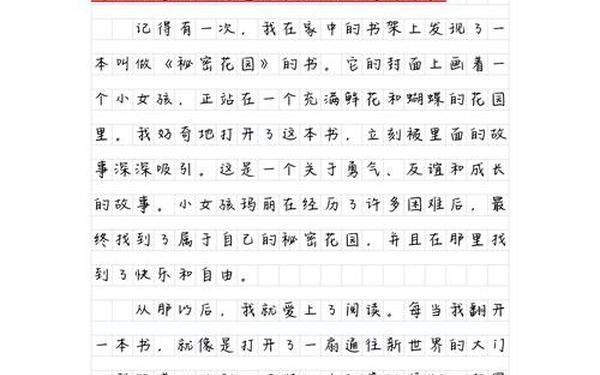 记得有一次，我在家中的书架上发现了一
本叫做《秘密花园》的书。它的封面上画着一
个小女孩，正站在一个充满鲜花和蝴蝶的花园
里。我好奇地打开了这本书，立刻被里面的故
事深深吸引。这是一个关于勇气、友谊和成长
的故事。小女孩玛丽在经历了许多困难后，最
终找到了属于自己的秘密花园，并且在那里找
到了快乐和自由。
从那以后，我就爱上了阅读。每当我翻开
一本书，就像是打开了一扇通往新世界的大门